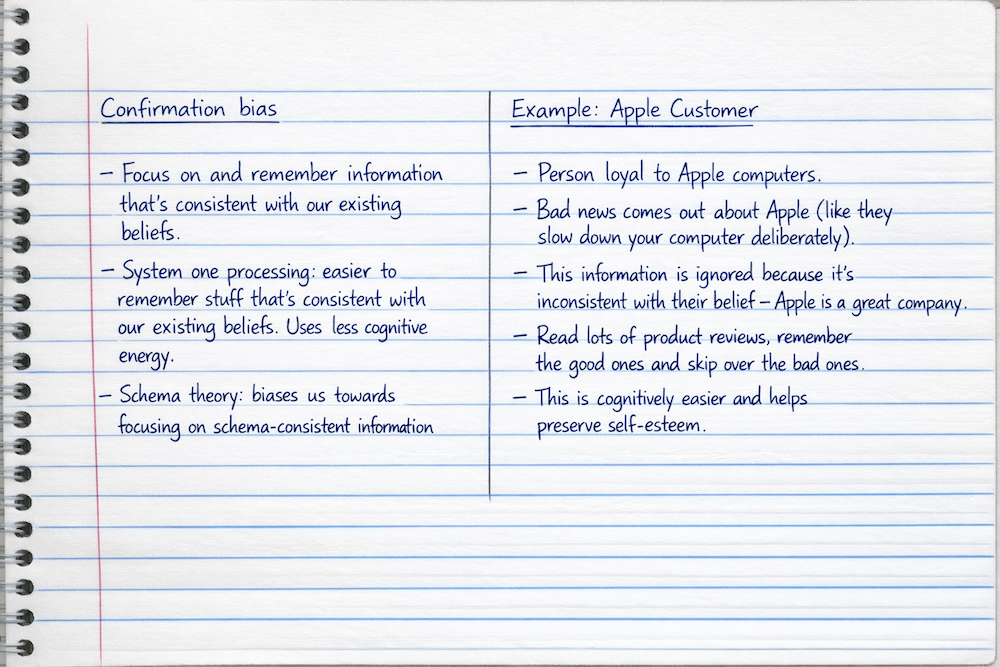 Confirmation bias
– Focus on and remember information
that's consistent with our existing
beliefs.
– System one processing: easier to
remember stuff that's consistent with
our existing beliefs. Uses less cognitive
energy.
– Schema theory: biases us towards
focusing on schema-consistent information
Example: Apple Customer
– Person loyal to Apple computers.
– Bad news comes out about Apple (like they
slow down your computer deliberately).
– This information is ignored because it's
inconsistent with their belief – Apple is a great company.
– Read lots of product reviews, remember
the good ones and skip over the bad ones.
– This is cognitively easier and helps
preserve self-esteem.